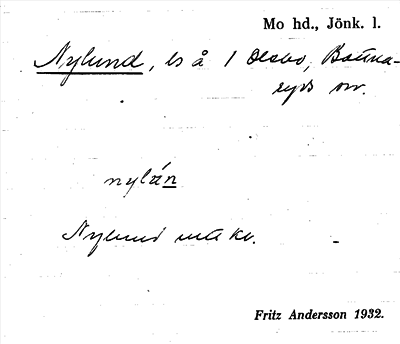 Mo hd., Jönk. l.
Nylund, ls å 1 Olsbo, Bottna-
ryds sn.
nylán
Nylund
Fritz Andersson 1932.